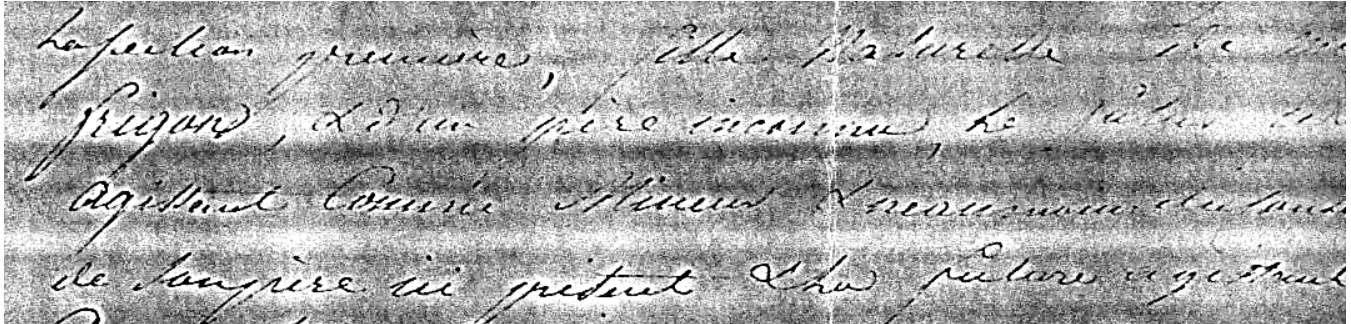 La section première, fille Naturelle
frigond, & d'un père inconnu, Le futur
agissant Comme Mineur & néanmoins du
de Son père ici présent & La future agissant